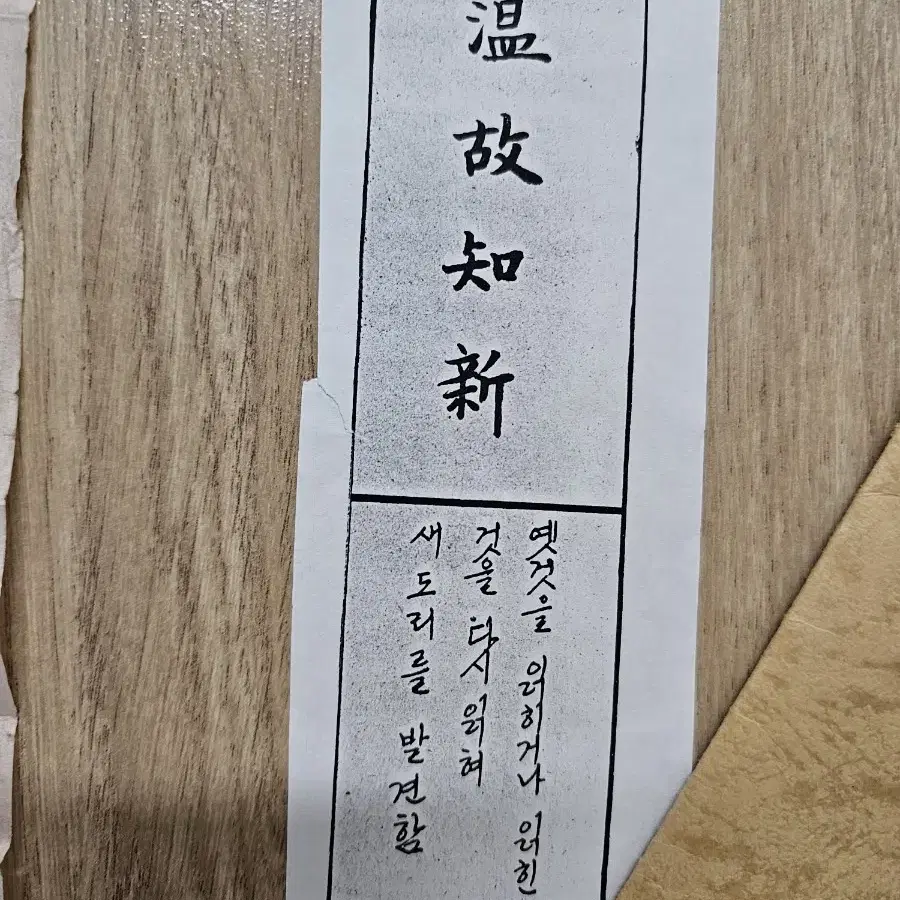 温故知新
옛것을 읽히거나 읽힌
것을 다시 읽혀
새 도리를 발견함